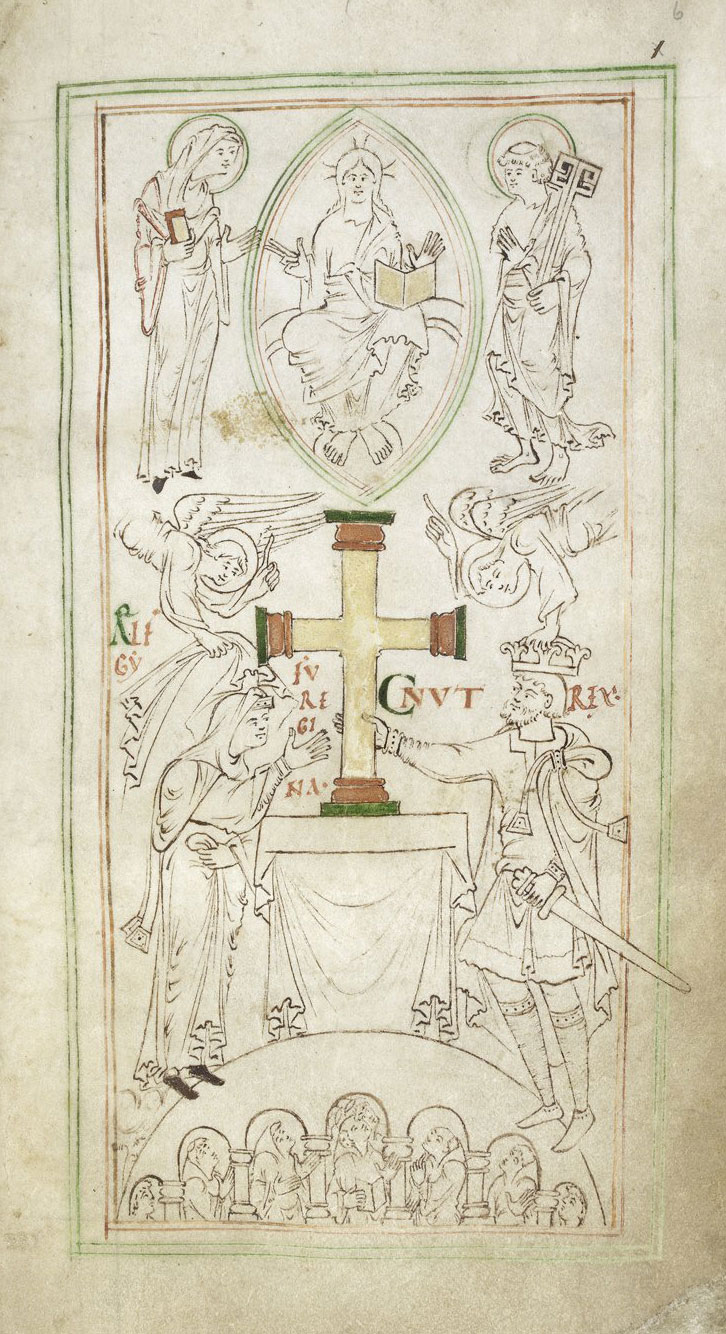 6
1
ÆLF
GẎ
FV
RE
GI
NA·
CNVT REX·